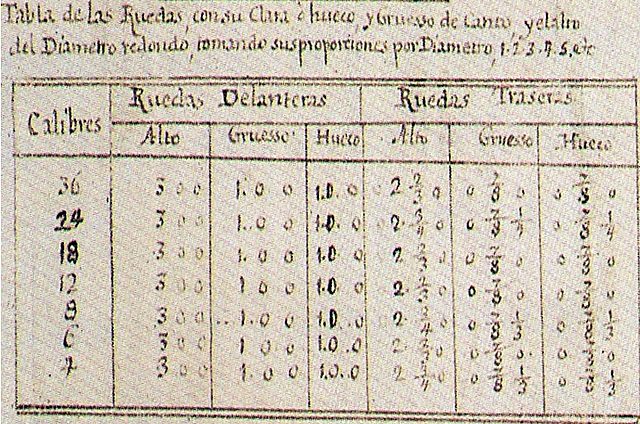 Tabla de las Ruedas, con su Clara ò hueco, y Gruesso de Canto y el alto
del Diametro redondo, tomando sus proporciones por Diametro, 1. 2. 3. 4. 5. &c
Ruedas Delanteras Ruedas Traseras
Calibres
Alto Gruesso Hueco Alto Gruesso Hueco
36 3 0 0 1. 0 0 1.0. 0 0 2 2/3 0 0 7/8 0 0 7/8 0
24 3 0 0 1. 0 0 1.0. 0 0 2 3/4 0 7/8 1/4 0 7/8 1/4
18 3 0 0 1. 0 0 1.0. 0 2 2/3 0 7/8 0 0 7/8 0
12 3 0 0 1 0 0 1.0. 0 2 2/3 0 7/8 0 0 7/8 0
8 3 0 0 1. 0 0 1.0. 0 2 3/4 0 7/8 1/3 0 7/8 1/3
6 3 0 0 1 0 0 1.0. 0 2 2/3 0 7/8 0 0 7/8 0
4 3 0 0 1. 0 0 1.0. 0 2 3/4 0 7/8 1/3 0 7/8 1/3